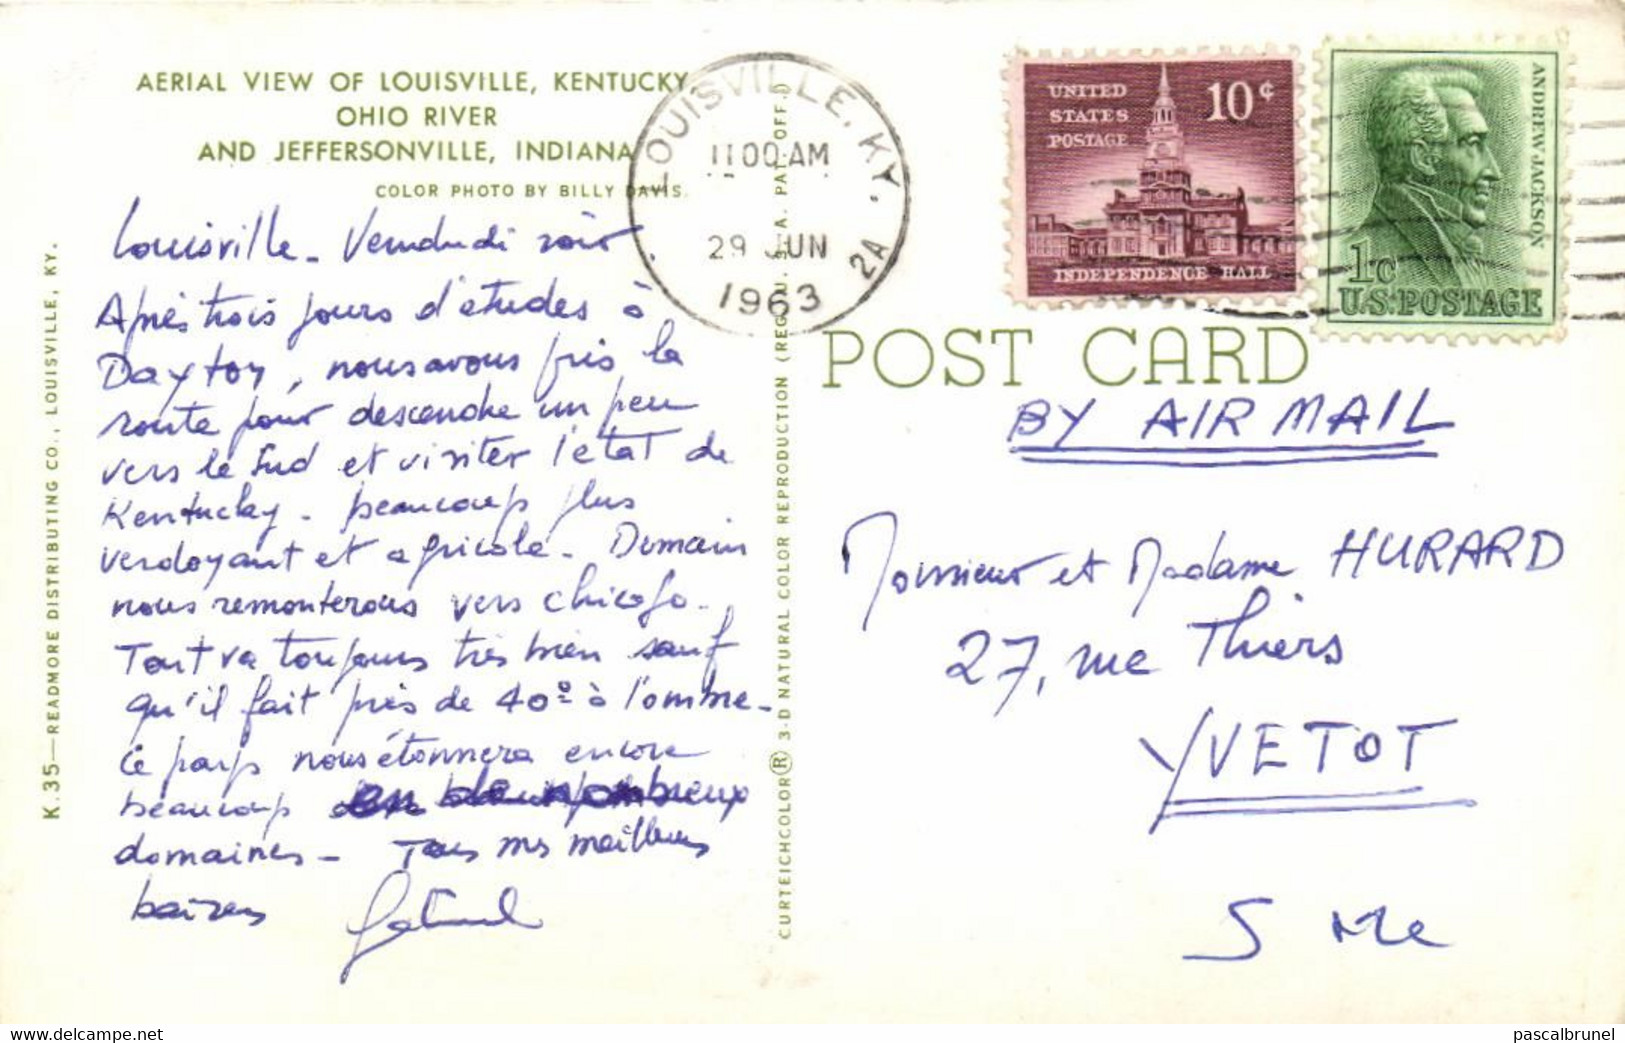 AERIAL VIEW OF LOUISVILLE, KENTUCKY
OHIO RIVER
AND JEFFERSONVILLE, INDIANA
COLOR PHOTO BY BILLY DAVIS.
Louisville - Vendredi soir.
Après trois jours d'études à
Dayton, nous avons pris la
route pour descendre un peu
vers le Sud et visiter l'état de
Kentucky - beaucoup plus
verdoyant et agricole - Demain
nous remonterons vers chicago -
Tout va toujours très bien sauf
qu'il fait près de 40° à l'ombre -
Ce pays nous étonnera encore
beaucoup en de nombreux
domaines - Tous mes meilleurs
baisers
K.35—READMORE DISTRIBUTING CO., LOUISVILLE, KY.
CURTEICHCOLOR® 3-D NATURAL COLOR REPRODUCTION (REG. U.S.A. PAT. OFF.)
LOUISVILLE, KY. 2A
11 00 AM
29 JUN
1963
UNITED
STATES
POSTAGE
10¢
INDEPENDENCE HALL
ANDREW JACKSON
1c
U.S. POSTAGE
POST CARD
BY AIR MAIL
Monsieur et Madame HURARD
27, rue Thiers
YVETOT
S Me
www.delcampe.net
pascalbrunel